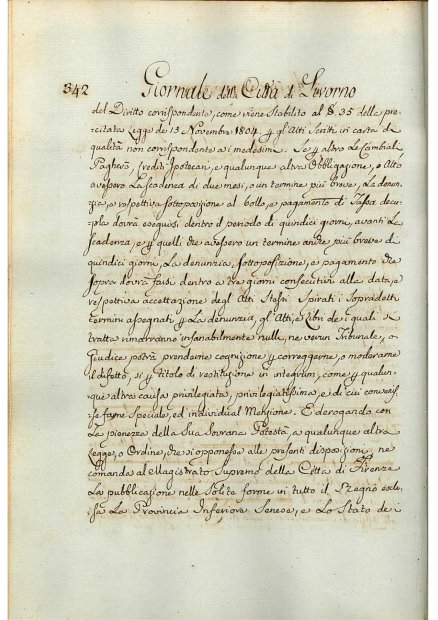 342 Giornale della Città di Livorno
del Diritto corrispondente, come viene Stabilito al §. 35 della pre=
citata Legge de 13 Novembre 1804. e p gl'Atti Scritti in carta di
qualità non corrispondente a i medesimi. Se p altro le Cambiali
Pagherò, Crediti Ipotecari, e qualunque altra Obbligazione, o Atto
avessero La scadenza di due mesi, o un termine più breve, La denun=
zia, e respettiva sottoposizione al bollo, e pagamento di Tassa decu=
pla dovrà eseguirsi dentro il periodo di quindici giorni, avanti La
Scadenza, e p quelli che avessero un termine anche più breve di
quindici giorni, La denunzia, sottoposizione, e pagamento che
sopra dovrà farsi dentro a tre giorni consecutivi alla data, e
respettiva accettazione degl'Atti Stessi. Spirati i Sopradetti
termini assegnati p La denunzia, gl'Atti, e Libri de i quali si
tratta rimarranno insanabilmente nulli, ne verun Tribunale, o
Giudice potrà prenderne cognizione p correggerne, o moderarne
il difetto, si p titolo di restituzione in integrum, come p qualun=
que altra causa privilegiata, privilegiatissima, e di cui convenis=
se farne Speciale, ed individual Menzione. E derogando con
La pienezza della Sua Sovrana Potestà a qualunque altra
Legge, o Ordine, che si opponesse alle presenti disposizioni, ne
comanda al Magistrato Supremo della Città di Firenze
La pubblicazione nelle Solite forme in tutto il Regno esclu=
sa La Provincia Inferiore Senese, e Lo Stato di